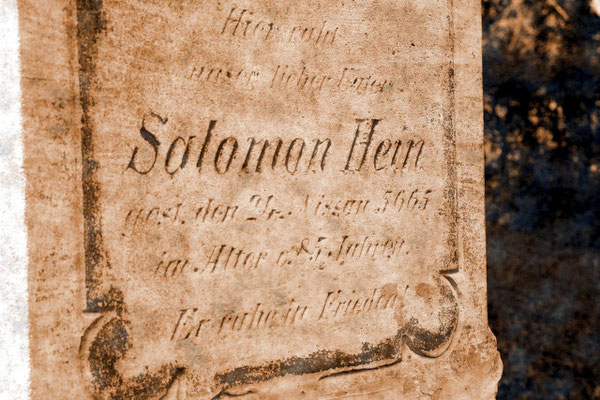 Hier ruht
unser lieber Vater
Salomon Hein
gest. den 24. Nissan 5665
im Alter v. 85 Jahren.
Er ruhe in Frieden!